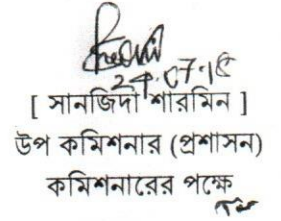 24.07.18
[ সানজিদা শারমিন ]
উপ কমিশনার (প্রশাসন)
কমিশনারের পক্ষে